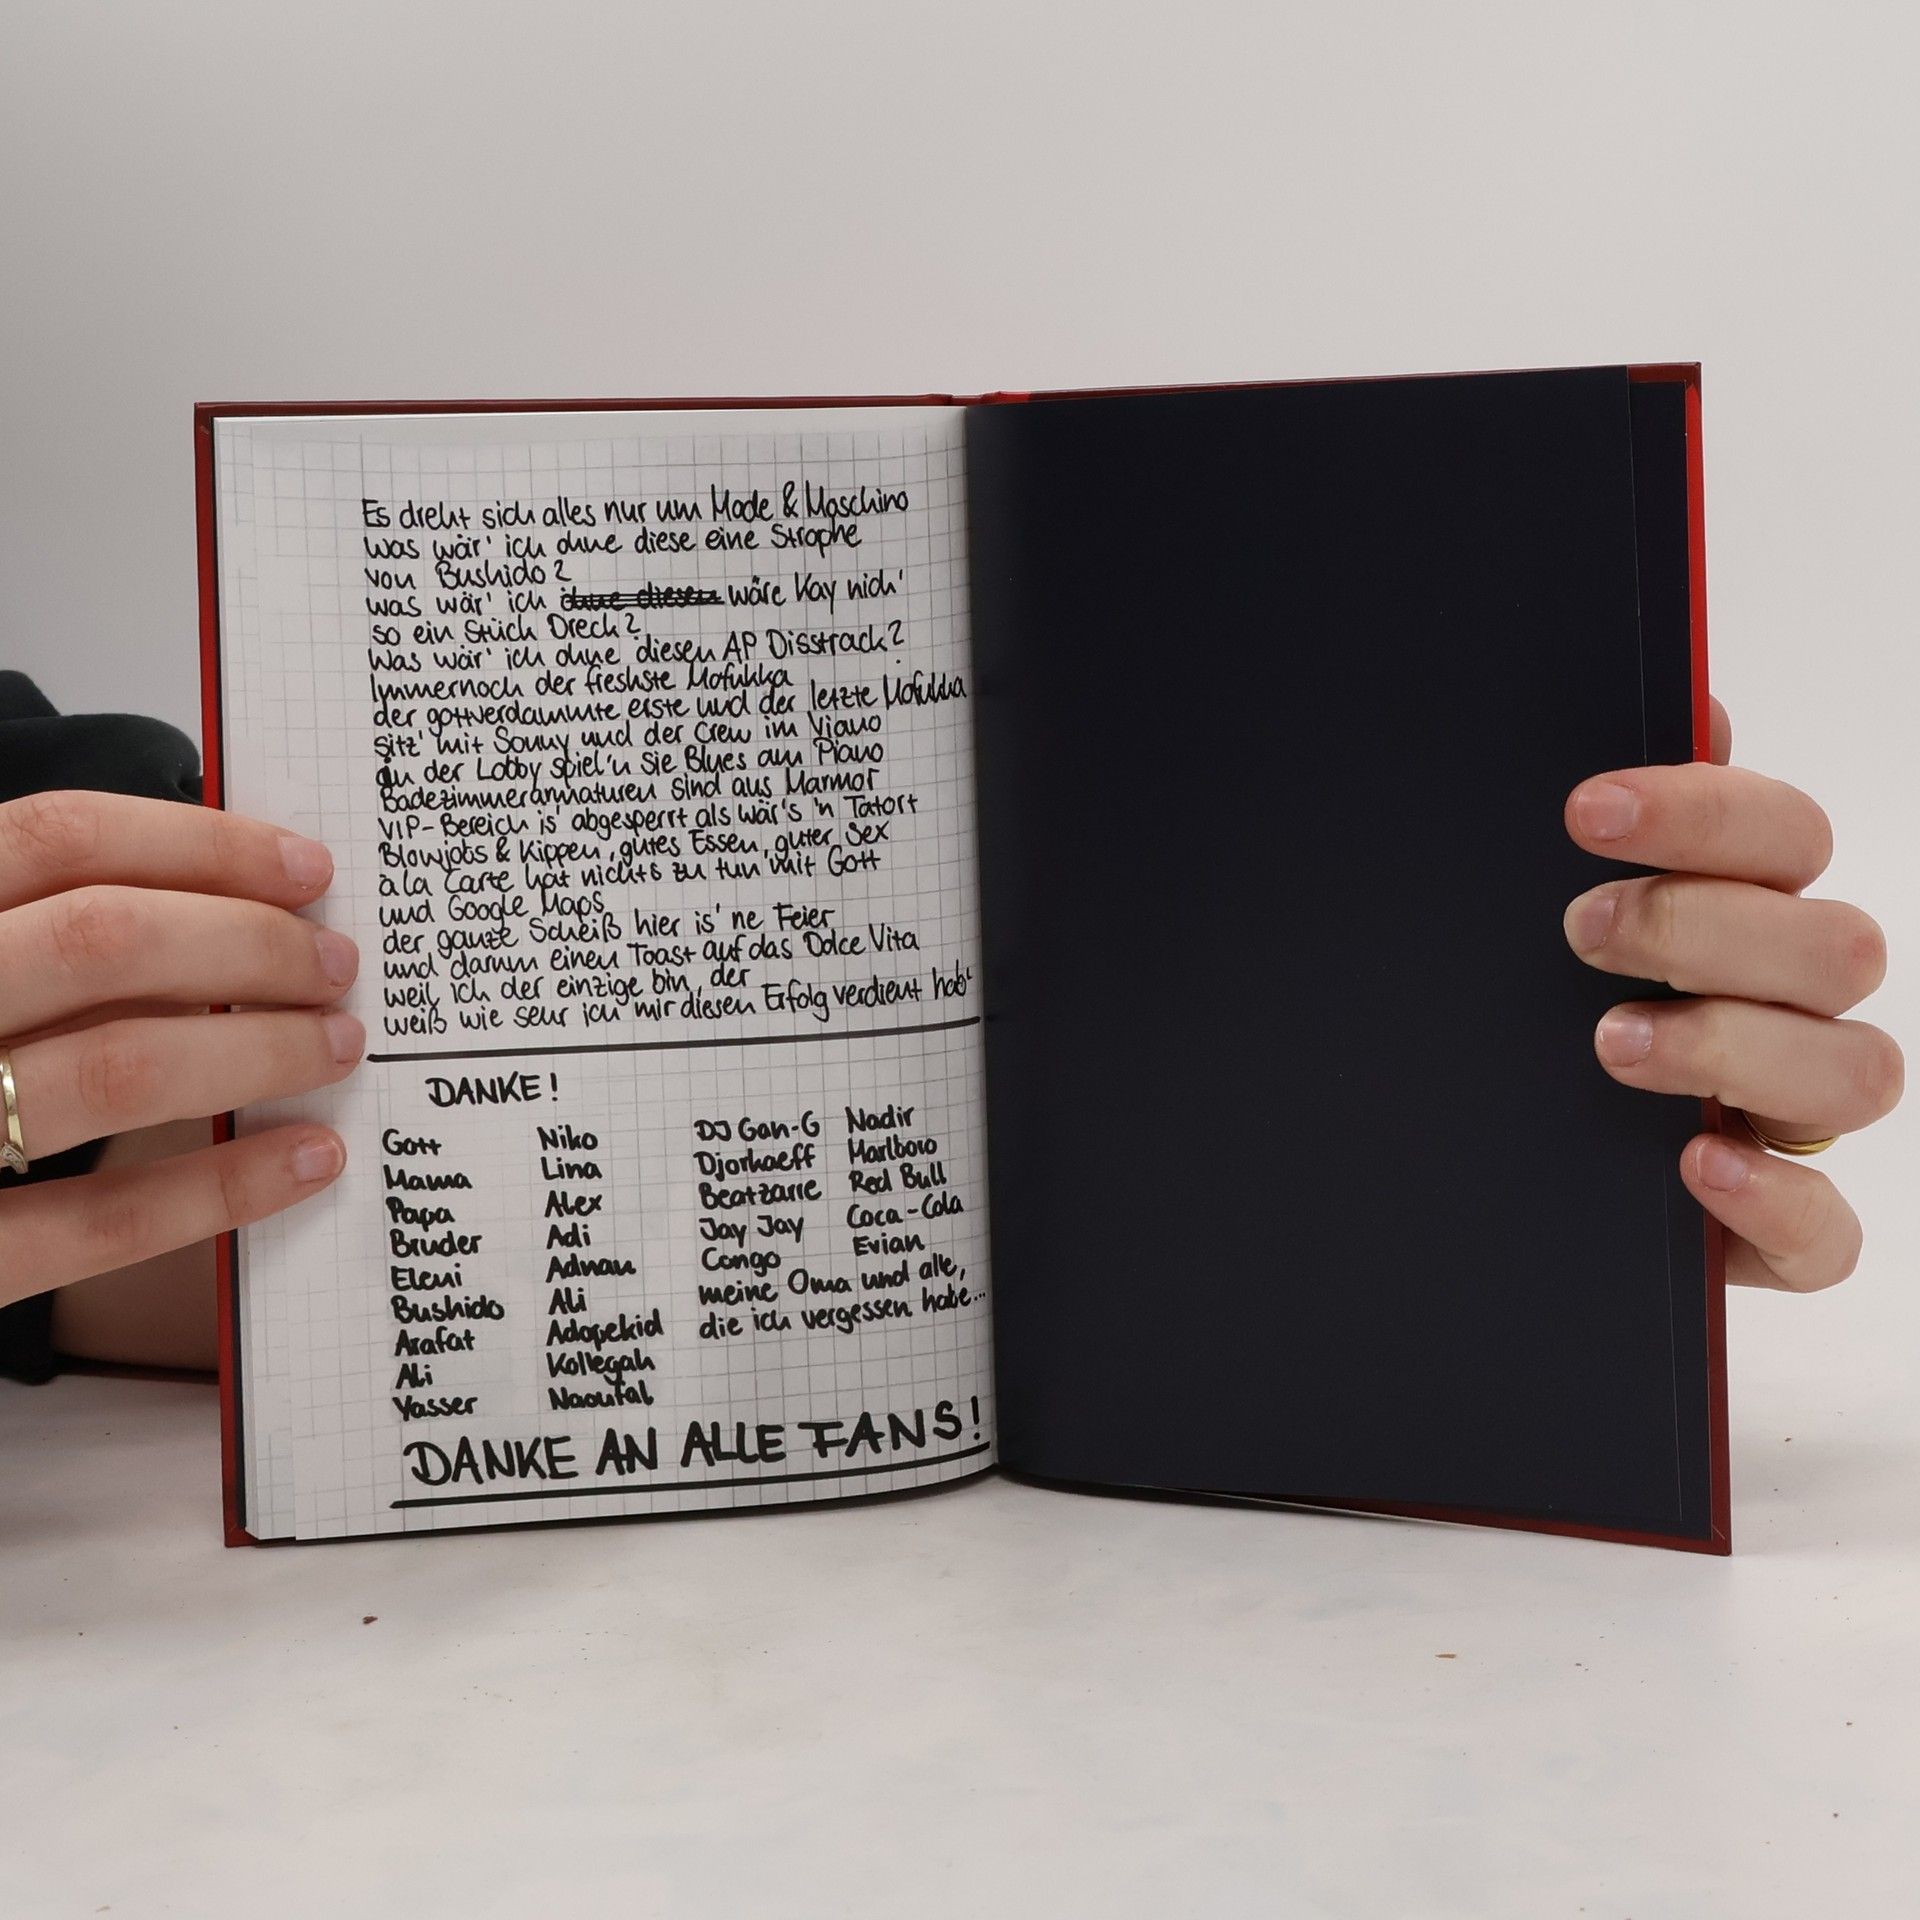 Es dreht sich alles nur um Mode & Moschino
Was wär' ich ohne diese eine Strophe
von Bushido?
was wär' ich ohne diesen wäre Kay nich'
so ein Stück Dreck?
Was wär' ich ohne diesen AP Disstrack?
Immernoch der freshste Mofukka
der gottverdammte erste und der letzte Mofukka
sitz' mit Sonny und der Crew im Viano
in der Lobby spiel'n sie Blues am Piano
Badezimmerarmaturen sind aus Marmor
VIP-Bereich is' abgesperrt als wär's 'n Tatort
Blowjobs & Kippen, gutes Essen, guter Sex
à la Carte hat nichts zu tun mit Gott
und Google Maps
der ganze Scheiß hier is' ne Feier
und darum einen Toast auf das Dolce Vita
weil ich der einzige bin, der
weiß wie sehr ich mir diesen Erfolg verdient hab'
DANKE!
Gott
Mama
Papa
Bruder
Eleni
Bushido
Arafat
Ali
Yasser
Niko
Lina
Alex
Adi
Adnan
Ali
Adopekid
Kollegah
Naoufal
DJ Gan-G
Djorkaeff
Beatzarre
Jay Jay
Congo
Nadir
Marlboro
Red Bull
Coca-Cola
Evian
meine Oma und alle,
die ich vergessen habe...
DANKE AN ALLE FANS!